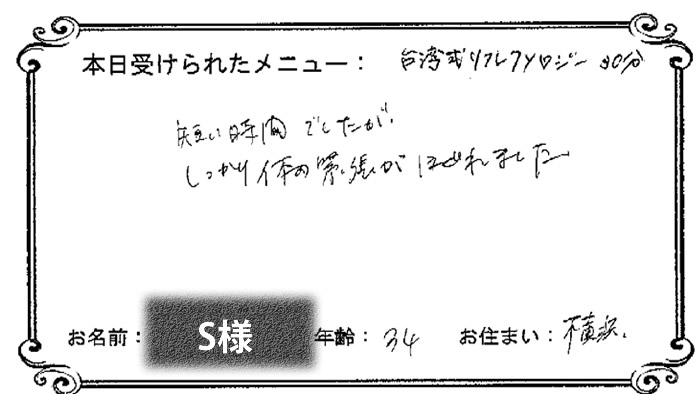 本日受けられたメニュー： 台湾式リフレクソロジー 90分
短い時間でしたが、
しっかり体の緊張がほぐれました
お名前： S様 年齢： 34 お住まい： 横浜.